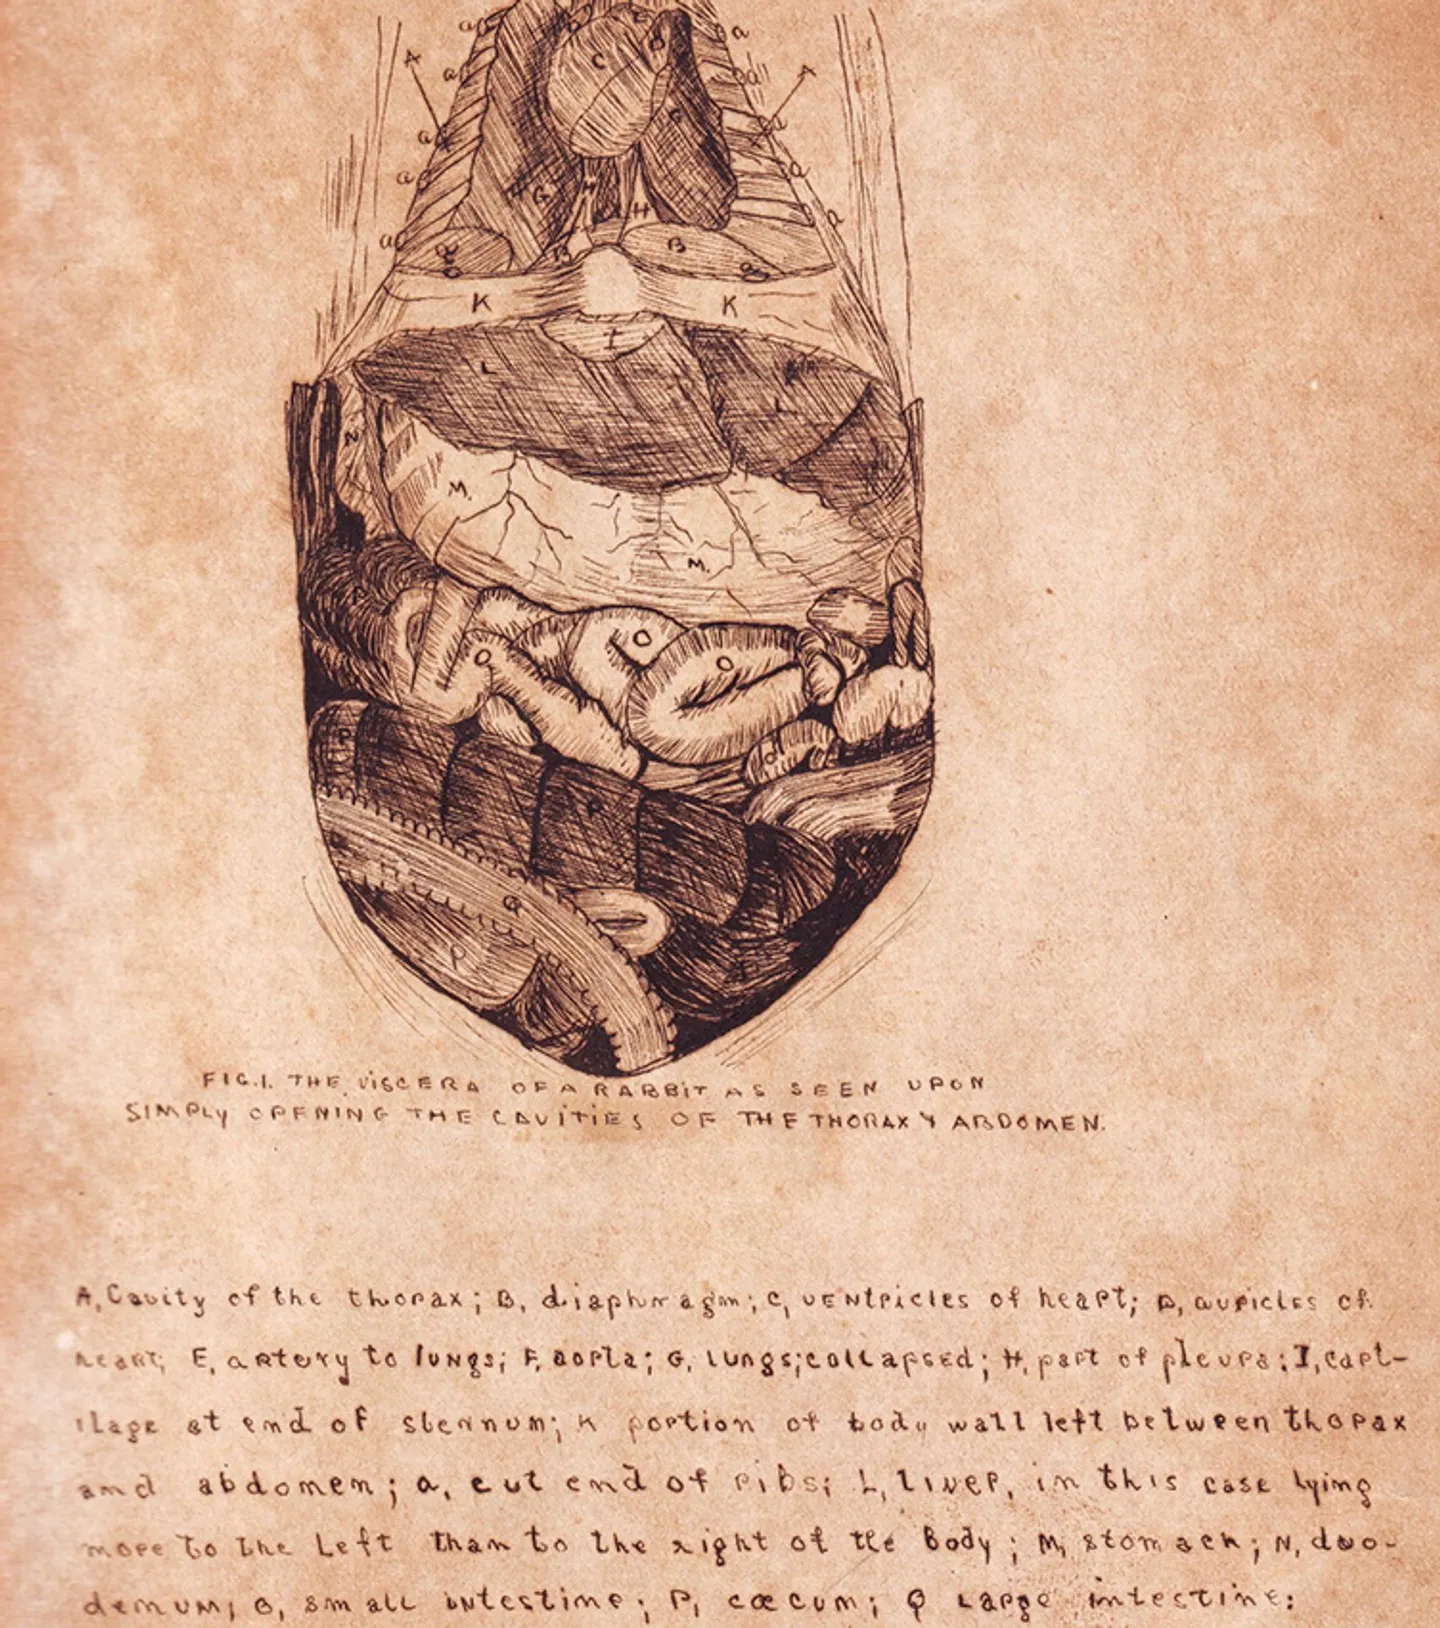 a
a
A
a
a
A
a
a
a
a
a
a
C
G
G
H
H
B
B
K
K
I
L
L
N
M.
M.
O
O
O
P
P
Q
P
FIG.1. THE VISCERA OF A RABBIT AS SEEN UPON
SIMPLY OPENING THE CAVITIES OF THE THORAX & ABDOMEN.
A, Cavity of the thorax; B, diaphragm; C, ventricles of heart; D, auricles of
heart; E, artery to lungs; F, aorta; G, lungs; collapsed; H, part of pleura; I, cart-
ilage at end of sternum; K portion of body wall left between thorax
and abdomen; a, cut end of ribs; L, liver, in this case lying
more to the Left than to the right of the Body; M, stomach; N, duo-
denum; O, small intestine; P, cœcum; Q Large intestine: